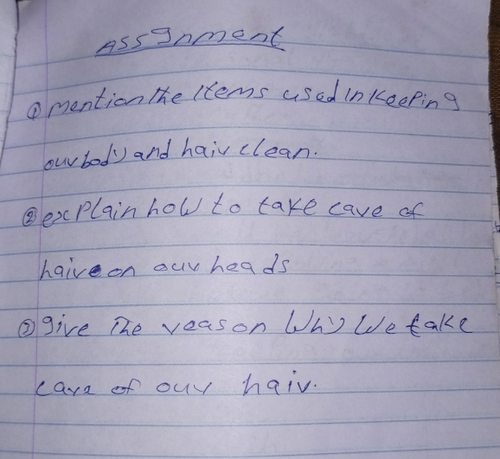 Assgnment
① mention the items used in keeping
our body and hair clean.
② explain how to take care of
haire on our heads
③ give the reason why we take
care of our hair.